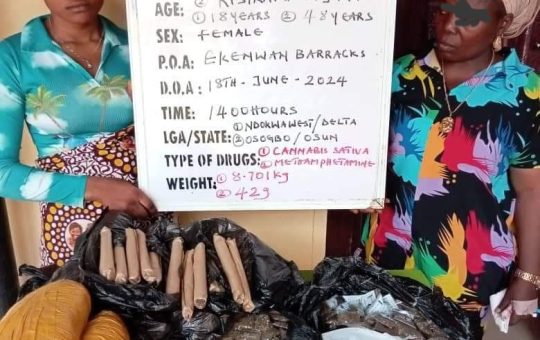 AGE: ① 18 YEARS ② 48 YEARS
SEX: FEMALE
P.O.A: EKENWAN BARRACKS
D.O.A: 18TH-JUNE-2024
TIME: 1400HOURS
LGA/STATE: ① NDOKWAWEST/DELTA
② OSOGBO/OSUN
TYPE OF DRUGS: ① CANNABIS SATIVA
② METDAMPHETAMINE
WEIGHT: ① 8.701kg
② 42g